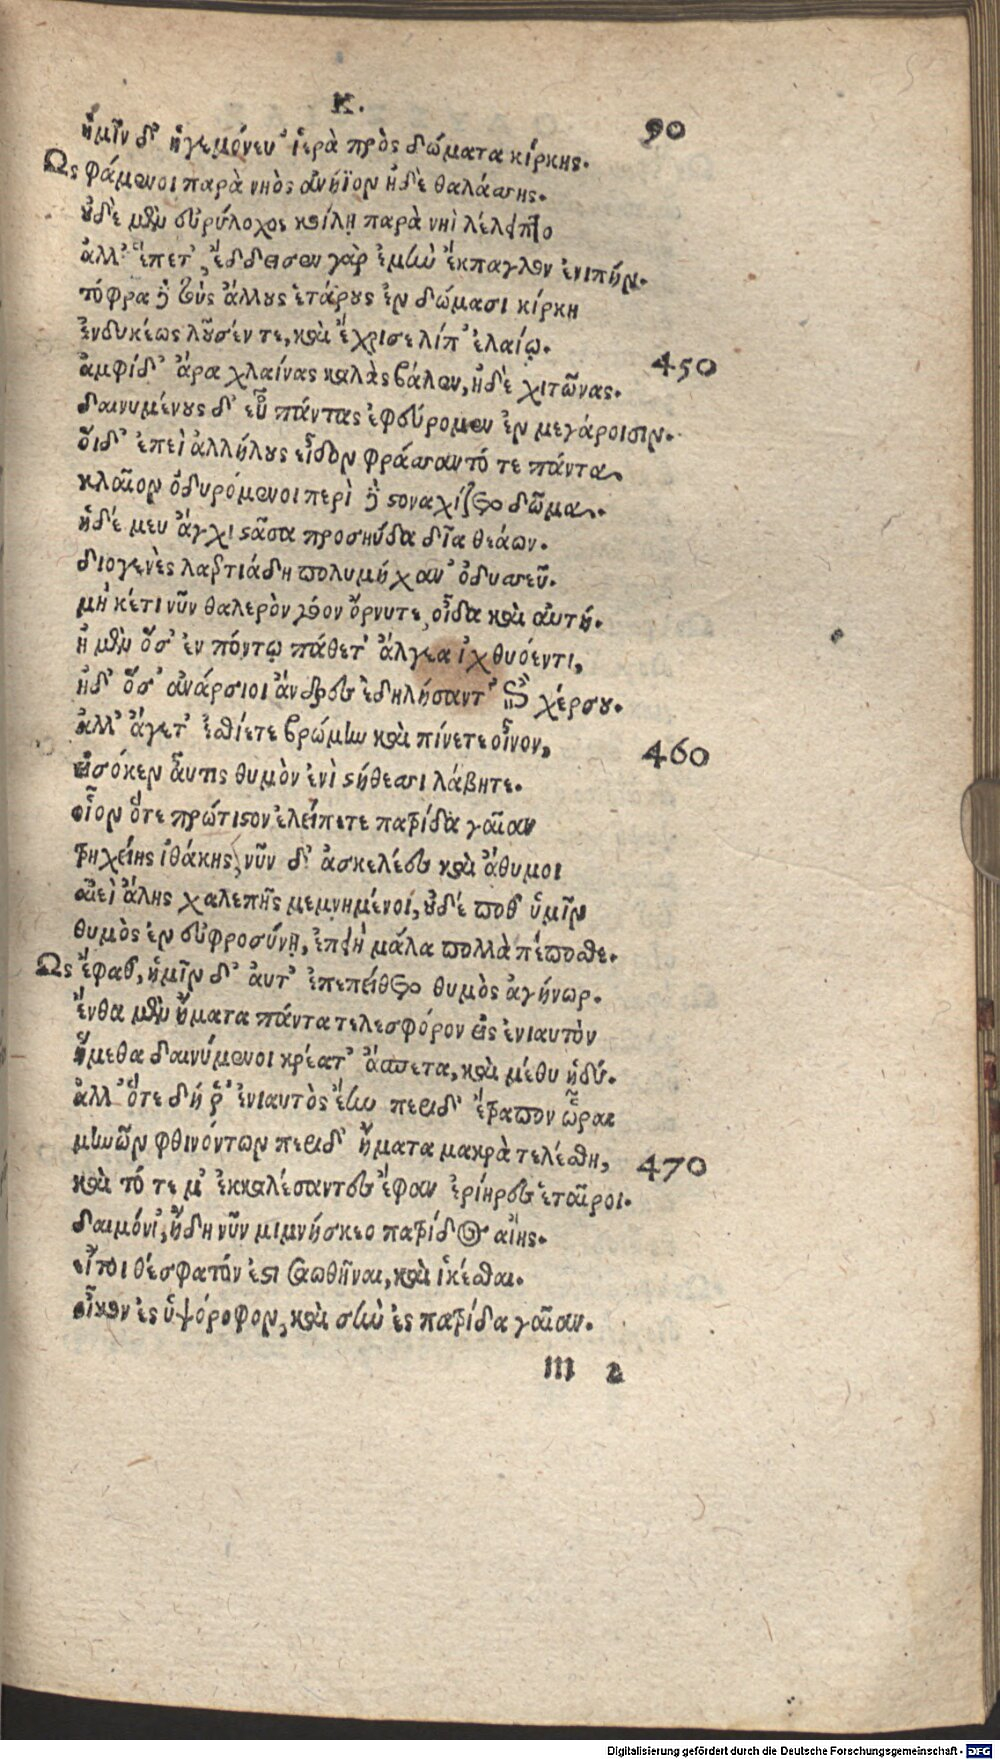 Κ.
90
ἡμῖν δ' ἡγεμόνευ' ἱερὰ πρὸς δώματα κίρκης.
Ως φάμενοι παρὰ νηὸς ἀνήϊον ἠδὲ θαλάσσης.
οὐδὲ μὲν εὐρύλοχος κοίλῃ παρὰ νηῒ λέλειπτο
ἀλλ' ἕπετ', ἔδδεισεν γὰρ ἐμὴν ἔκπαγλον ἐνιπήν.
τόφρα δὲ τοὺς ἄλλους ἑτάρους ἐν δώμασι κίρκη
ἐνδυκέως λοῦσέν τε, καὶ ἔχρισε λίπ' ἐλαίῳ.
450
ἀμφὶ δ' ἄρα χλαίνας καλὰς βάλεν, ἠδὲ χιτῶνας.
δαινυμένους δ' εὖ πάντας ἐφεύρομεν ἐν μεγάροισιν.
οἱ δ' ἐπεὶ ἀλλήλους εἶδον φράσσαντό τε πάντα
κλαῖον ὀδυρόμενοι περὶ δὲ στοναχίζετο δῶμα.
ἡ δέ μευ ἄγχι στᾶσα προσηύδα δῖα θεάων.
διογενὲς λαερτιάδη πολυμήχαν' ὀδυσσεῦ.
μὴ κέτι νῦν θαλερὸν γόον ὄρνυτε, οἶδα καὶ αὐτή.
ἠ μὲν ὅσ' ἐν πόντῳ πάθετ' ἄλγεα ἰχθυόεντι,
ἠδ' ὅσ' ἀνάρσιοι ἄνδρες ἐδηλήσαντ' ἐπὶ χέρσου.
ἀλλ' ἄγετ' ἐσθίετε βρώμην καὶ πίνετε οἶνον,
460
εἰσόκεν αὖτις θυμὸν ἐνὶ στήθεσσι λάβητε.
οἷον ὅτε πρώτιστον ἐλείπετε πατρίδα γαῖαν
τρηχείης ἰθάκης, νῦν δ' ἀσκελέες καὶ ἄθυμοι
αἰεὶ ἄλης χαλεπῆς μεμνημένοι, οὐδέ ποθ' ὑμῖν
θυμὸς ἐν εὐφροσύνῃ, ἐπειὴ μάλα πολλὰ πέποσθε.
Ως ἔφαθ', ἡμῖν δ' αὖτ' ἐπεπείθετο θυμὸς ἀγήνωρ.
ἔνθα μὲν ἤματα πάντα τελεσφόρον εἰς ἐνιαυτὸν
ἥμεθα δαινύμενοι κρέατ' ἄσπετα, καὶ μέθυ ἡδύ.
ἀλλ' ὅτε δή ῥ' ἐνιαυτὸς ἔην περὶ δ' ἔτραπον ὧραι
μηνῶν φθινόντων περὶ δ' ἤματα μακρὰ τελέσθη,
470
καὶ τό τε μ' ἐκκαλέσαντες ἔφαν ἐρίηρες ἑταῖροι.
δαιμόνι', ἤδη νῦν μιμνήσκεο πατρίδος αἴης.
εἴ τοι θέσφατόν ἐστι σαωθῆναι, καὶ ἱκέσθαι.
οἶκον ἐς ὑψόροφον, καὶ σὴν ἐς πατρίδα γαῖαν.
m 2
Digitalisierung gefördert durch die Deutsche Forschungsgemeinschaft - DFG